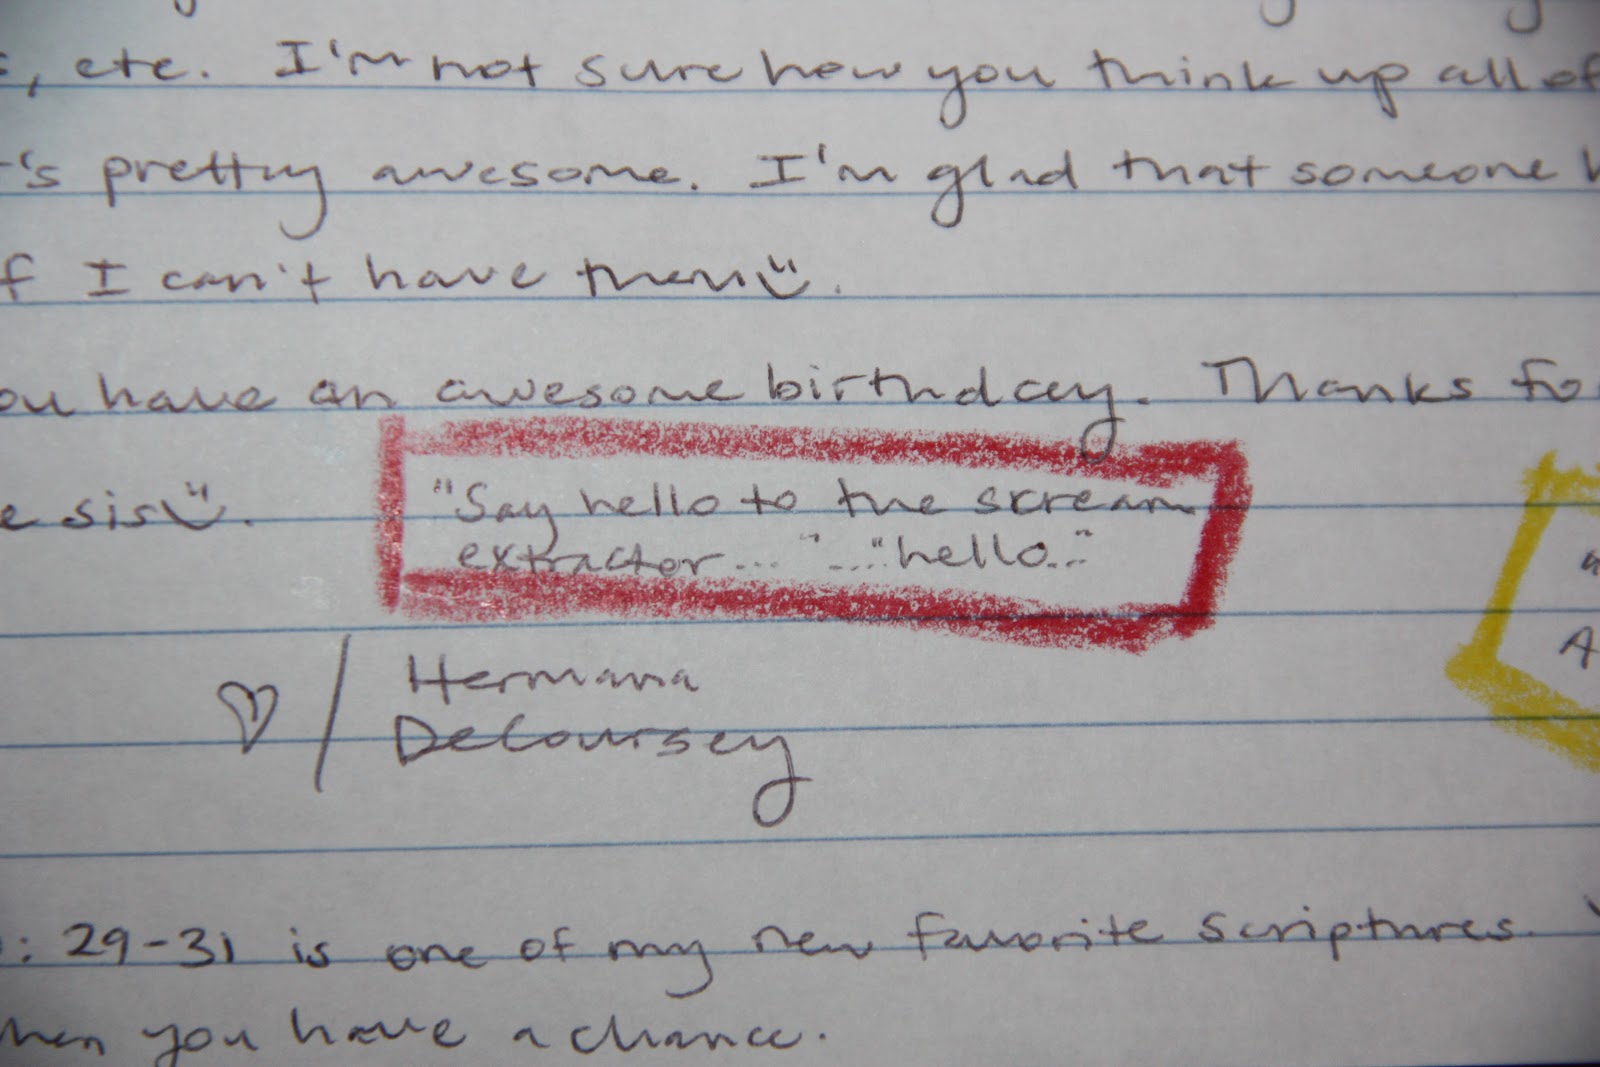 , etc. I'm not sure how you think up all of
's pretty awesome. I'm glad that someone
if I can't have them
you have an awesome birthday. Thanks fo
e sis
"Say hello to the scream
extractor...." ...."hello..."
Hermana
DeCoursey
A
: 29-31 is one of my new favorite scriptures.
when you have a chance.